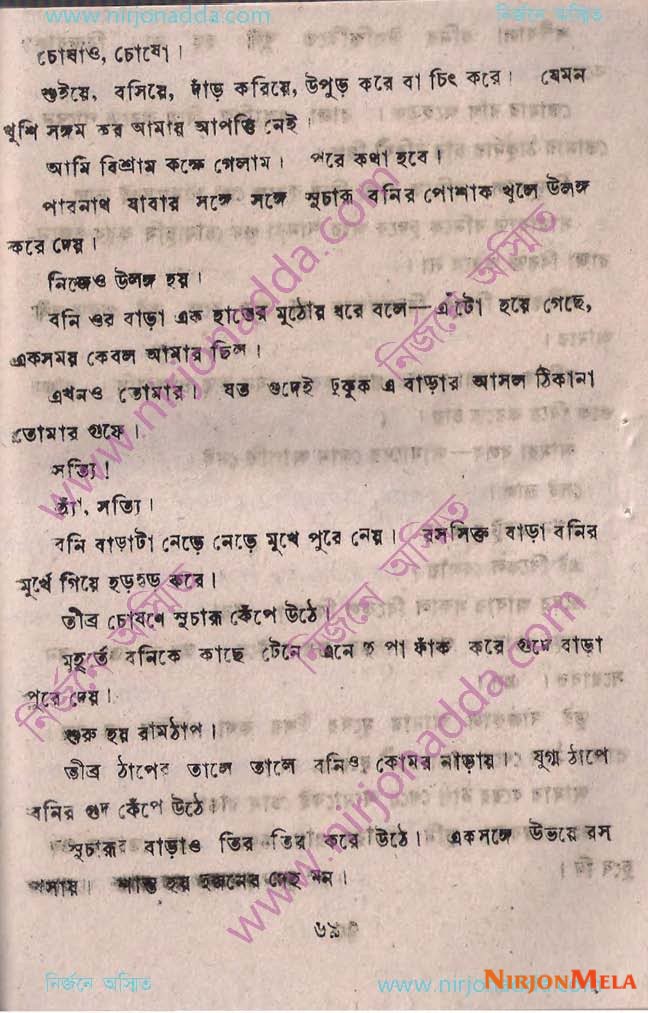 www.nirjonadda.com নির্জনে অস্মিত
চোষাও, চোষো।
শুইয়ে, বসিয়ে, দাঁড় করিয়ে, উপুড় করে বা চিৎ করে। যেমন
খুশি সঙ্গম কর আমার আপত্তি নেই।
আমি বিশ্রাম কক্ষে গেলাম। পরে কথা হবে।
পারনাথ যাবার সঙ্গে সঙ্গে সুচারু বনির পোশাক খুলে উলঙ্গ
করে দেয়।
নিজেও উলঙ্গ হয়।
বনি ওর বাড়া এক হাতের মুঠোয় ধরে বলে—এঁটো হয়ে গেছে,
একসময় কেবল আমার ছিল।
এখনও তোমার। যত গুদেই ঢুকুক এ বাড়ার আসল ঠিকানা
তোমার গুদে।
সত্যি!
হাঁ, সত্যি।
বনি বাড়াটা নেড়ে নেড়ে মুখে পুরে নেয়। রসসিক্ত বাড়া বনির
মুখে গিয়ে হড়হড় করে।
তীব্র চোষণে সুচারু কেঁপে উঠে।
মুহূর্তে বনিকে কাছে টেনে এনে পা ফাঁক করে গুদে বাড়া
পুরে দেয়।
শুরু হয় রামঠাপ।
তীব্র ঠাপের তালে তালে বনিও কোমর নাড়ায়। যুগ্ম ঠাপে
বনির গুদ কেঁপে উঠে।
সুচারুর বাড়াও তির তির করে উঠে। একসঙ্গে উভয়ে রস
খসায়। শান্ত হয় দুজনের দেহ মন।
৬৯
নির্জনে অস্মিত www.nirjonadda.com NIRJONMELA
www.nirjonadda.com
নির্জনে অস্মিত
নির্জনে অস্মিত
নির্জনে অস্মিত
www.nirjonadda.com